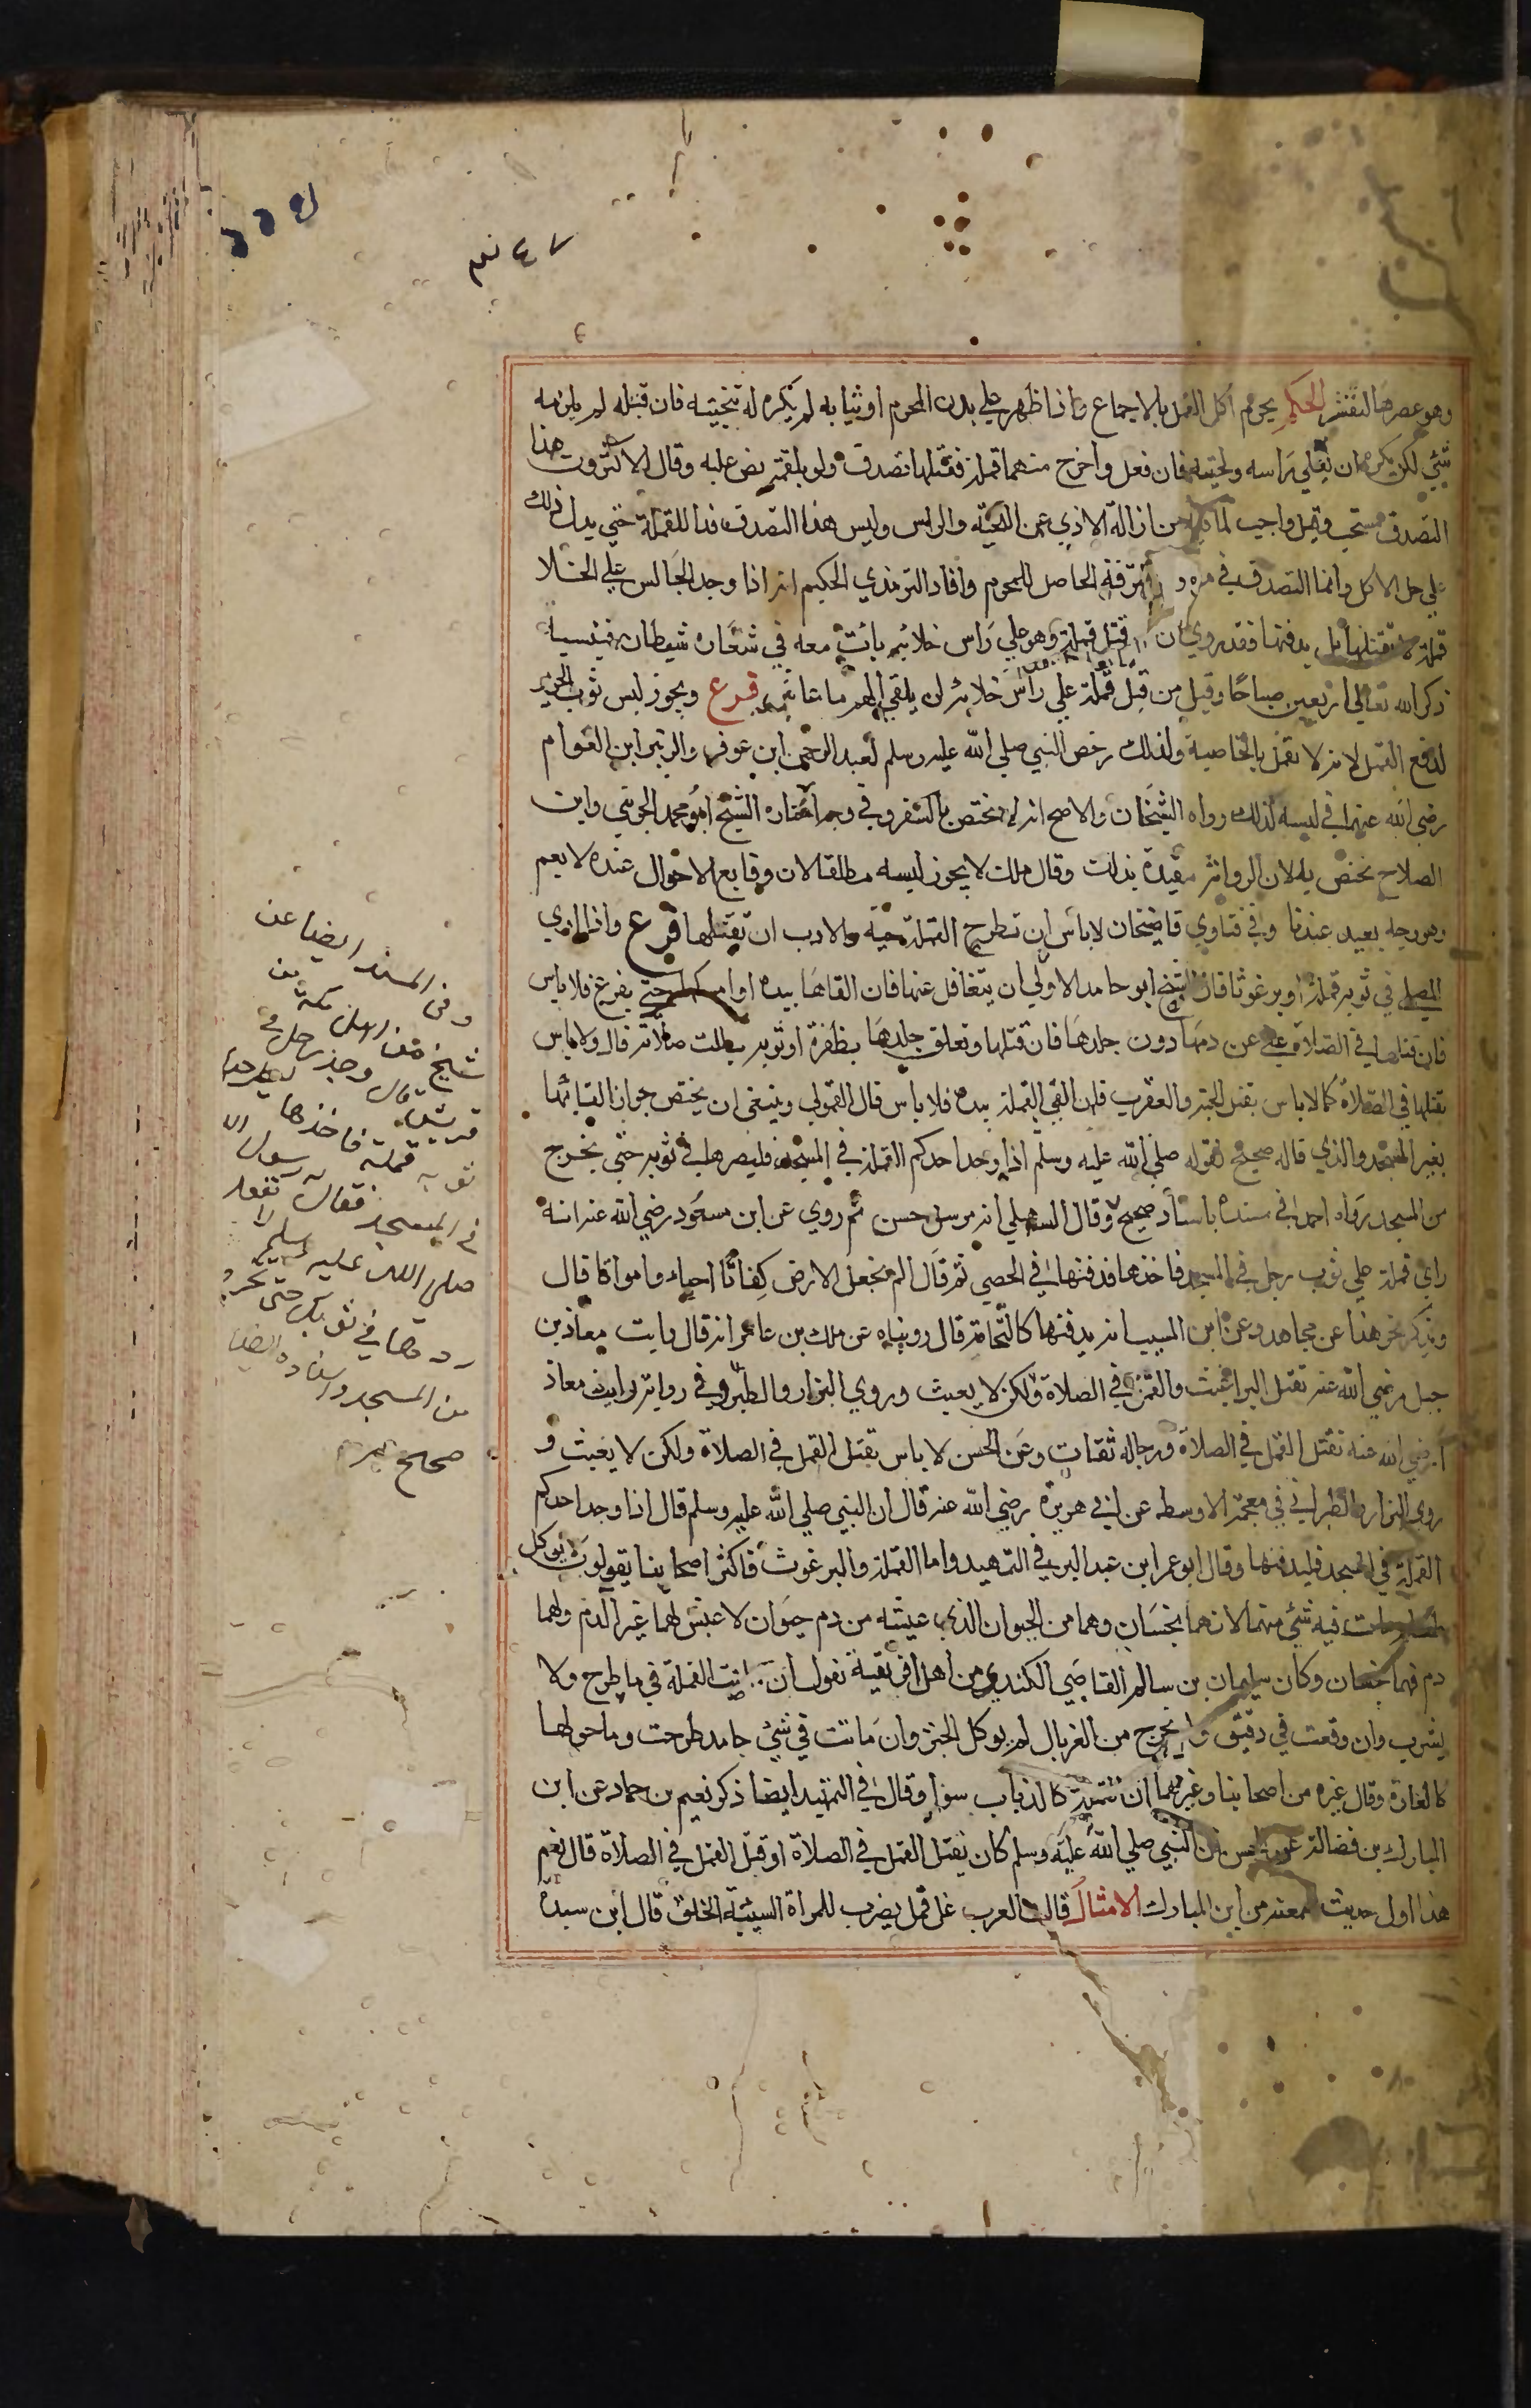 ٤٧ نعم
وهو عصرها لتقشر الحكم يحرم اكل القمل بالاجماع واذا ظهر علي بدن المحرم او ثيابه لم يكره له تنحيته فان قتله لم يلزمه
شيئ لكن يكره ان يفلي راسه ولحيته فان فعل واخرج منهما قملة فقتلها تصدق ولو بلقمة نص عليه وقال الاكثرون هذا
التصدق مستحب وقيل واجب لما فيه من ازالة الاذي عن اللحية والراس وليس هذا التصدق فدا للقملة حتي يدل ذلك
علي حل الاكل وانما التصدق في الترفه الحاصل للمحرم وافاد الترمذي الحكيم انه اذا وجد الجالس علي الخلا
قملة لا تقتلها بل يدفنها فقد روي ان من قتل قملة وهو علي راس خلائه بات معه في شعاره شيطان فينسيه
ذكر الله تعالي اربعين صباحا وقيل من قتل قملة علي راس خلائه لم يلقي الهم ما عاش فرع ويجوز لبس ثوب الحرير
لدفع القمل لانه لا يقمل بالخاصية ولذلك رخص النبي صلي الله عليه وسلم لعبد الرحمن ابن عوف والزبير ابن العوام
رضي الله عنهما في لبسه لذلك رواه الشيخان والاصح انه لا يختص بالسفر وفي وجه اختاره الشيخ ابو محمد الجويني وابن
الصلاح يختص به لان الرواية مقيدة بذلك وقال ملك لا يجوز لبسه مطلقا لان وقايع الاحوال عنده لا يعم
وهو وجه بعيد عندنا وفي فتاوي قاضيخان لا باس ان تطرح القملة حية والادب ان تقتلها فرع واذا راي
المصلي في ثوبه قملة او برغوثا فان الشيخ ابو حامد الاولي ان يتغافل عنها فان القاها بيده او امسكها حتي يفرغ فلا باس
فان قتلها في الصلاة عفي عن دمها دون جلدها فان قتلها وتعلق جلدها بظفره او ثوبه بطلت صلاته قال ولا باس
بقتلها في الصلاة كما لا باس بقتل الحية والعقرب فان القي القملة بيده فلا باس قال القمولي وينبغي ان يختص جواز القائها
بغير المسجد والذي قاله صحيح لقوله صلي الله عليه وسلم اذا وجد احدكم القملة في المسجد فليصرها في ثوبه حتي يخرج
من المسجد رواه احمد في مسنده باسناد صحيح وقال السهيلي انه مرسل حسن ثم روي عن ابن مسعود رضي الله عنه انه
راي قملة علي ثوب رجل في المسجد فاخذها فدفنها في الحصي ثم قال الم نجعل الارض كفاتا احياء وامواتا قال
ويذكر نحو هذا عن مجاهد وعن ابن المسيب انه يدفنها كالنخامة قال رويناه عن ملك بن عامر انه قال رايت معاذ بن
جبل رضي الله عنه تقتل البراغيث والقمل في الصلاة ولكن لا يعبث وروي البزار والطبراني في رواية رايت معاذ
رضي الله عنه تقتل القمل في الصلاة ورجاله ثقات وعن الحسن لا باس تقتل القمل في الصلاة ولكن لا يعبث و
روي البزار والطبراني في معجمه الاوسط عن ابي هريرة رضي الله عنه قال ان النبي صلي الله عليه وسلم قال اذا وجد احدكم
القملة في المسجد فليدفنها وقال ابو عمر ابن عبد البر في التمهيد واما القملة والبرغوث فاكثر اصحابنا يقولون لا يوكل
طعام مات فيه شيئ منهما لانهما نجسان وهما من الحيوان الذي عيشه من دم حيوان لا عيش لهما غير الدم ولهما
دم فهما نجسان وكان سليمان بن سالم القاضي الكندي من اهل افريقية نقول ان ماتت القملة في ما طرح ولا
يشرب وان وقعت في دقيق ولم تخرج من الغربال لم يوكل الخبز وان ماتت في شيئ جامد طرحت وما حولها
كالفارة وقال غيره من اصحابنا وغيرهم ان القملة كالذباب سوا وقال في التمهيد ايضا ذكر نعيم بن حماد عن ابن
المبارك بن فضالة عن الحسن ان النبي صلي الله عليه وسلم كان يقتل القمل في الصلاة او قتل القمل في الصلاة قال نعيم
هذا اول حديث سمعته من ابن المبارك الامثال قالت العرب غل قمل يضرب للمراة السيئة الخلق قال ابن سيده
وفي المسند ايضا عن
شيخ من اهل مكة من
قريش قال وجد رجل في
ثوبه قملة فاخذها ليطرحها
في المسجد فقال له رسول الله
صلى الله عليه وسلم لا تفعل
ردها في ثوبك حتى تخرج
من المسجد واسناده ايضا
صحيح